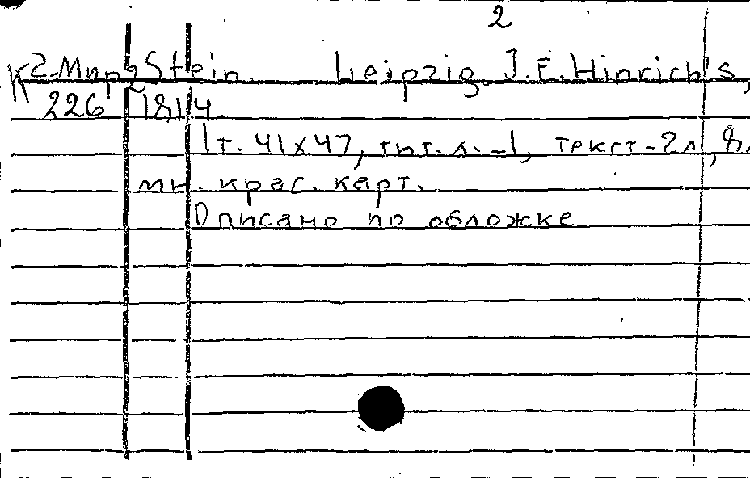 2
К2-Мир2 Stein. Leipzig. J.E.Hinrich's,
226 1814
1т. 41х47, тит.л.-1, текст-2л, 8
мн. крас. карт.
Описано по обложке